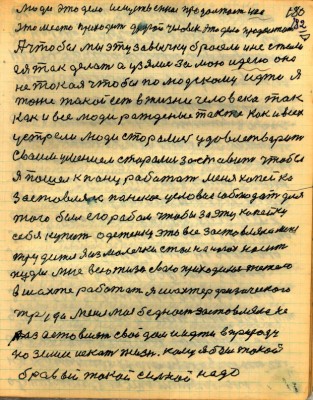 люди это дело искуственно продолжают на
это место приходит другой человек это дело продолжает
А чтобы мы эту завычку бросели и не стали
я так делать а узяли за мою идею она
не токая чтобы по людскому идти я
тоже такой есть в жизни человека так
как и все люди рождение также как и всех
устрели люди старались удовлетворить
своим умением старались заставить чтобы
я пошел к пану работат меня копейка
заставляла панские условие
того был его рабом чтобы за эту копейку
себя купит одеженку это все заставляло мене
трудится я из молочки стал на ногах носит
нужды мне всю жизнь свою приходилос тяжело
в шахте работат я шахтер физического
труда меня моя бедност заставляла не
раз оставит свой дом и идти в природу
по земли искат жизн. кому я был такой
бравый такой силной надо